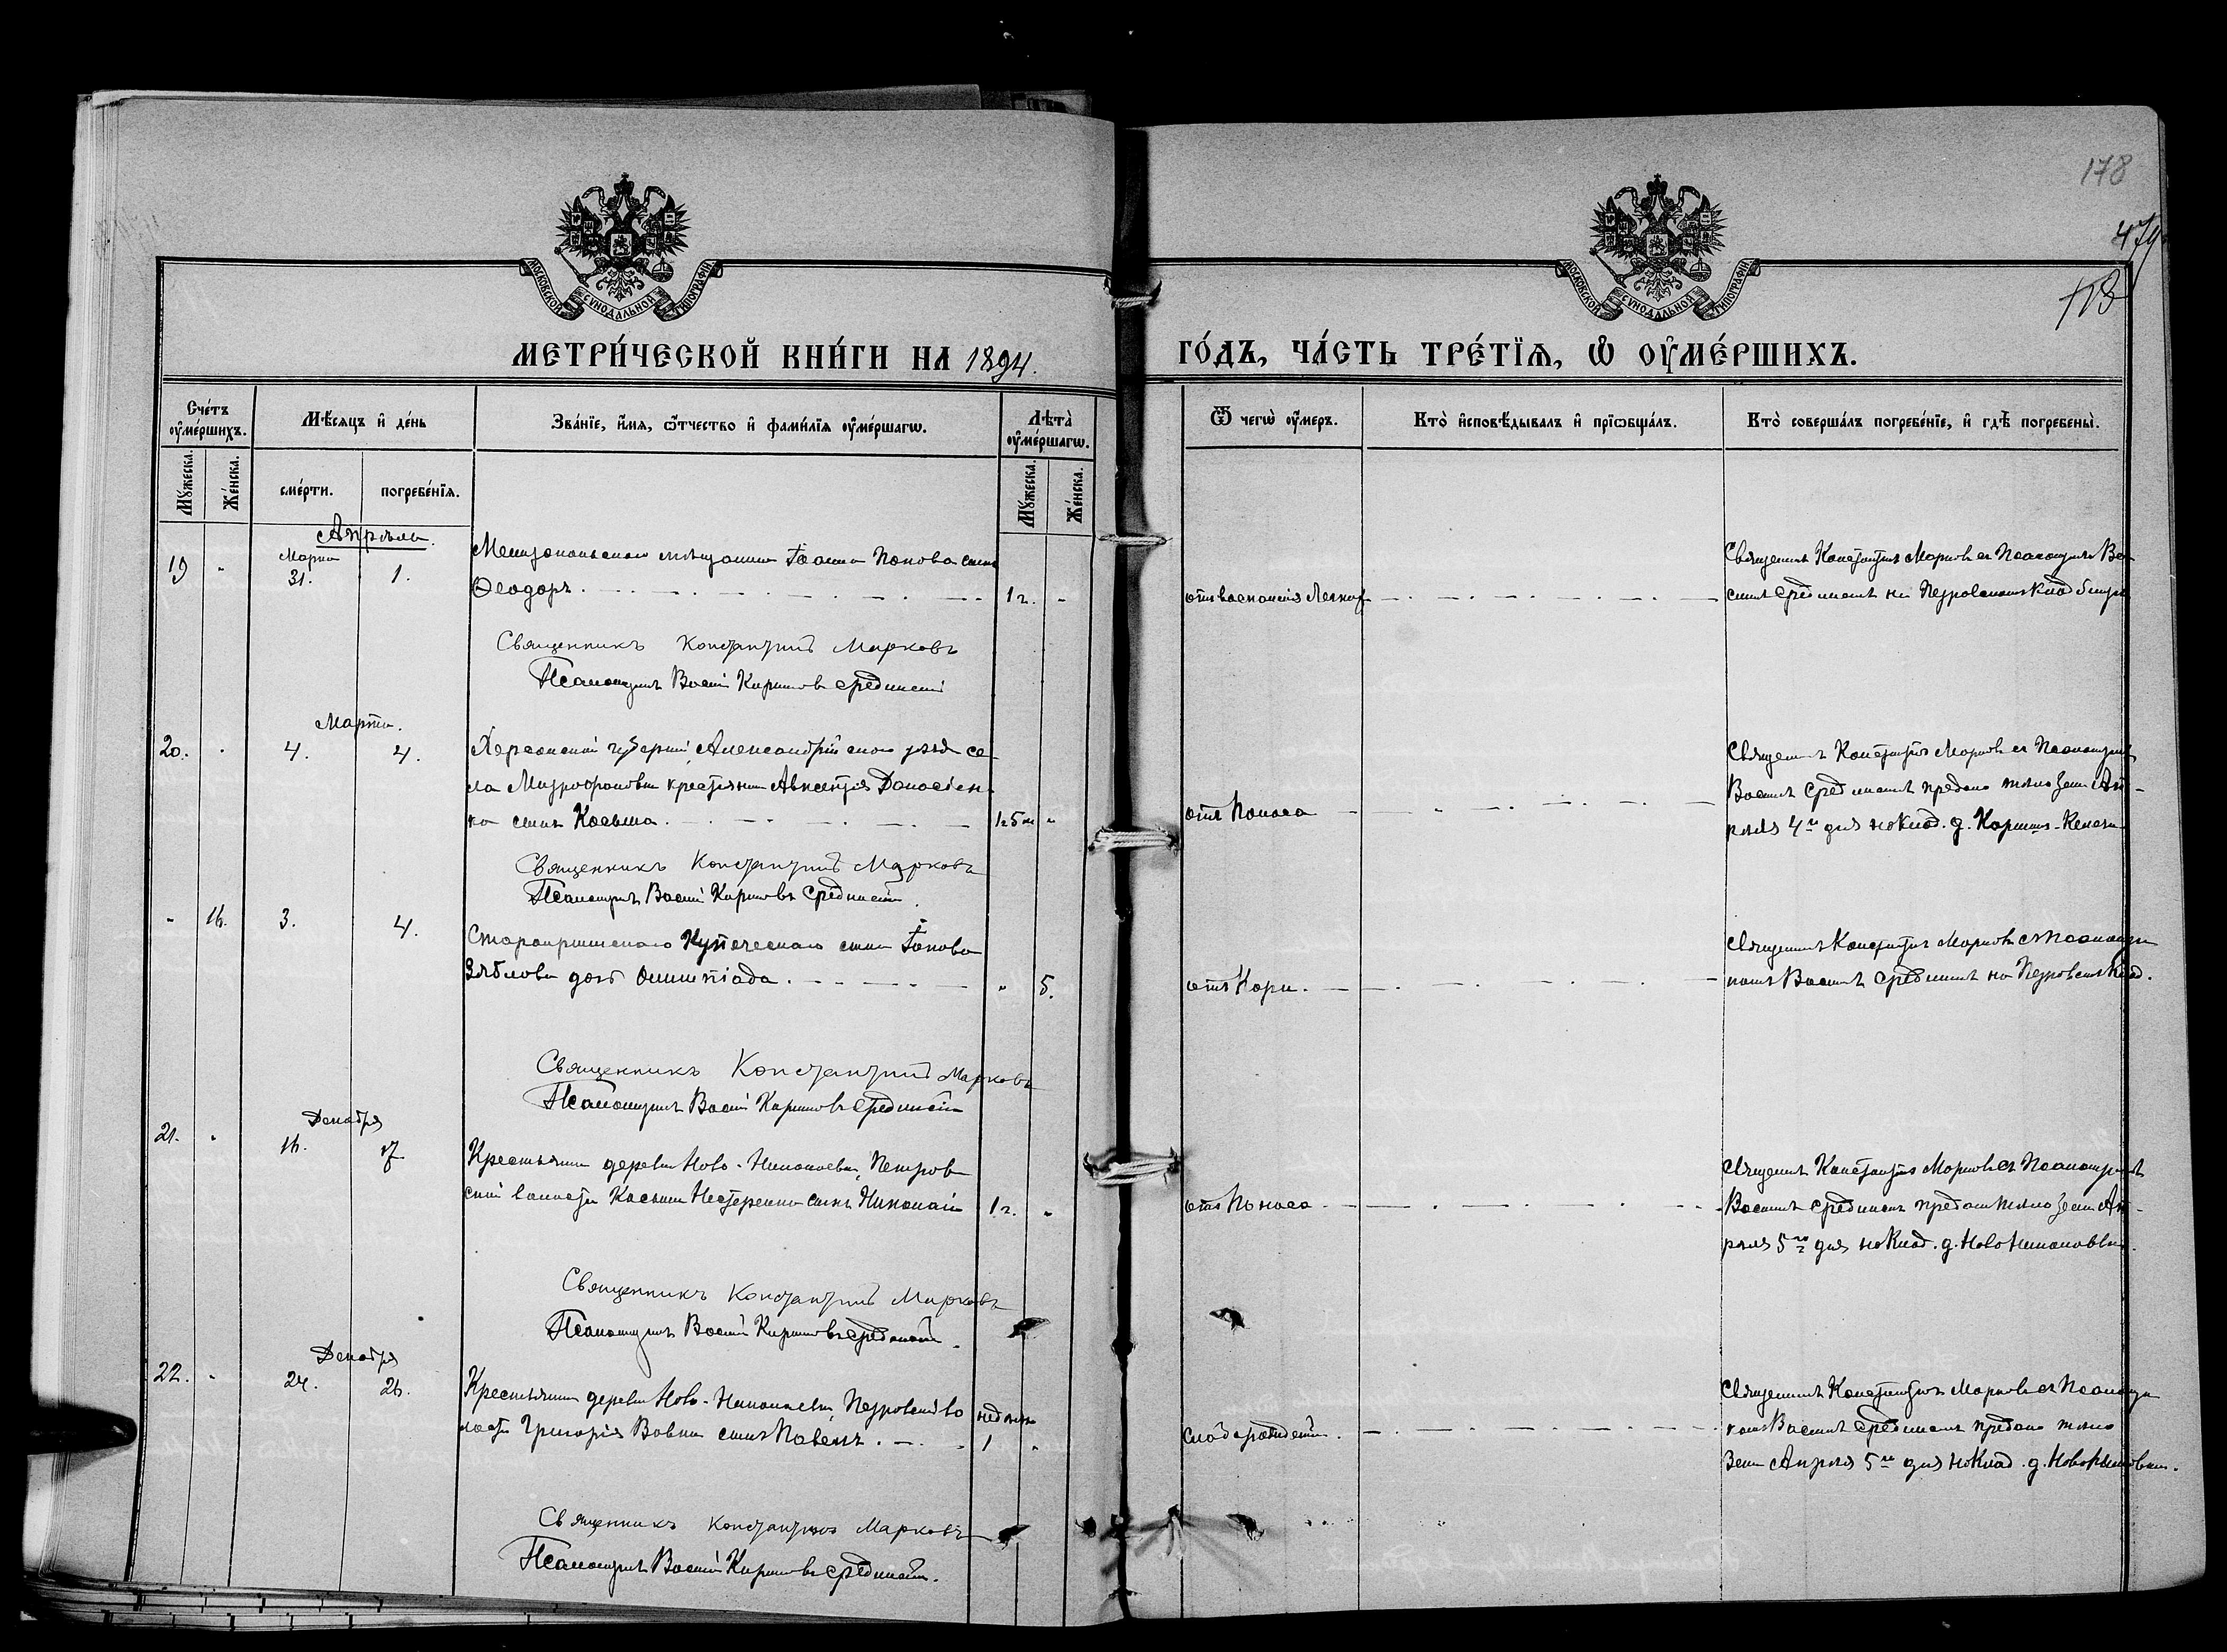 178
479
118
МОСКОВСКОЙ СѴНОДАЛЬНОЙ ТИПОГРАФІИ
МОСКОВСКОЙ СѴНОДАЛЬНОЙ ТИПОГРАФІИ
МЕТРИ́ЧЕСКОЙ КНИ́ГИ НА 1894.
ГО́ДЪ, ЧА́СТЬ ТРЕ́ТЇѦ, Ѡ҆ ОУ҆МЕ́РШИХЪ.
Сче́тъ оу҆ме́ршихъ.
Мꙋ́жеска.
Же́нска.
Мѣ́сѧцъ и҆ де́нь
сме́рти.
погребе́нїѧ.
Зва́нїе, и҆́мѧ, ѻ҆́тчество и҆ фами́лїѧ оу҆ме́ршагѡ.
Лѣ́та оу҆ме́ршагѡ.
Мꙋ́жеска.
Же́нска.
Ѿ чегѡ̀ оу҆́меръ.
Кто̀ и҆сповѣ́дывалъ и҆ прїѡбща́лъ.
Кто̀ соверша́лъ погребе́нїе, и҆ гдѣ̀ погребены̀.
Апрѣль.
19 " Марта 31. 1.
Мелитопольскаго мѣщанина Іоанна Попова сынъ
Ѳеодоръ. 1 г. "
отъ воспаленія легкихъ
Священникъ Константинъ Марковъ съ Псаломщик Ва-
силіемъ Срединскимъ на Петровскомъ кладбищѣ
Священникъ Константинъ Марковъ
Псаломщикъ Василій Кириловъ Срединскій
Марта.
20. " 4. 4.
Херсонской губерніи, Александрійскаго уѣзда се-
ла Митрофановки крестьянина Авксентія
ка сынъ Косьма. 1 г. 5 м. "
отъ Поноса
Священникъ Константинъ Марковъ съ Псаломщик
Василіемъ Срединскимъ предано тѣло земли Ап-
рѣля 4го дня на клад. д.
Священникъ Константинъ Марковъ
Псаломщикъ Василій Кириловъ Срединскій.
" 16. 3. 4.
Старокрымскаго Купеческаго сына Іакова
Зяблова дочь Олимпіада. " 5.
отъ Кори.
Священникъ Константинъ Марковъ съ Псаломщи
комъ Василіемъ Срединскимъ на Петровскомъ Клад.
Священникъ Константинъ Марковъ
Псаломщикъ Василій Кириловъ Срединскій
Декабря
21. " 16. 17.
Крестьянина деревни Ново-Николаевки, Петров
ской волости Косьмы Нестеренко сынъ Николай 1 г. "
отъ Поноса
Священникъ Константинъ Марковъ съ Псаломщикомъ
Василіемъ Срединскимъ предано тѣло земли Ап-
рѣля 5го дня на клад. д. Ново Николаевки.
Священникъ Константинъ Марковъ
Псаломщикъ Василій Кириловъ Срединскій.
Декабря
22. " 24. 26.
Крестьянина деревни Ново-Николаевки, Петровской во
лости Григорія Вовка сынъ Павелъ. недѣля 1 "
Священникъ Константинъ Марковъ съ Псаломщи
комъ Василіемъ Срединскимъ предано тѣло
земли Апрѣля 5го дня на Клад. д.
Священникъ Константинъ Марковъ
Псаломщикъ Василій Кириловъ Срединскій.